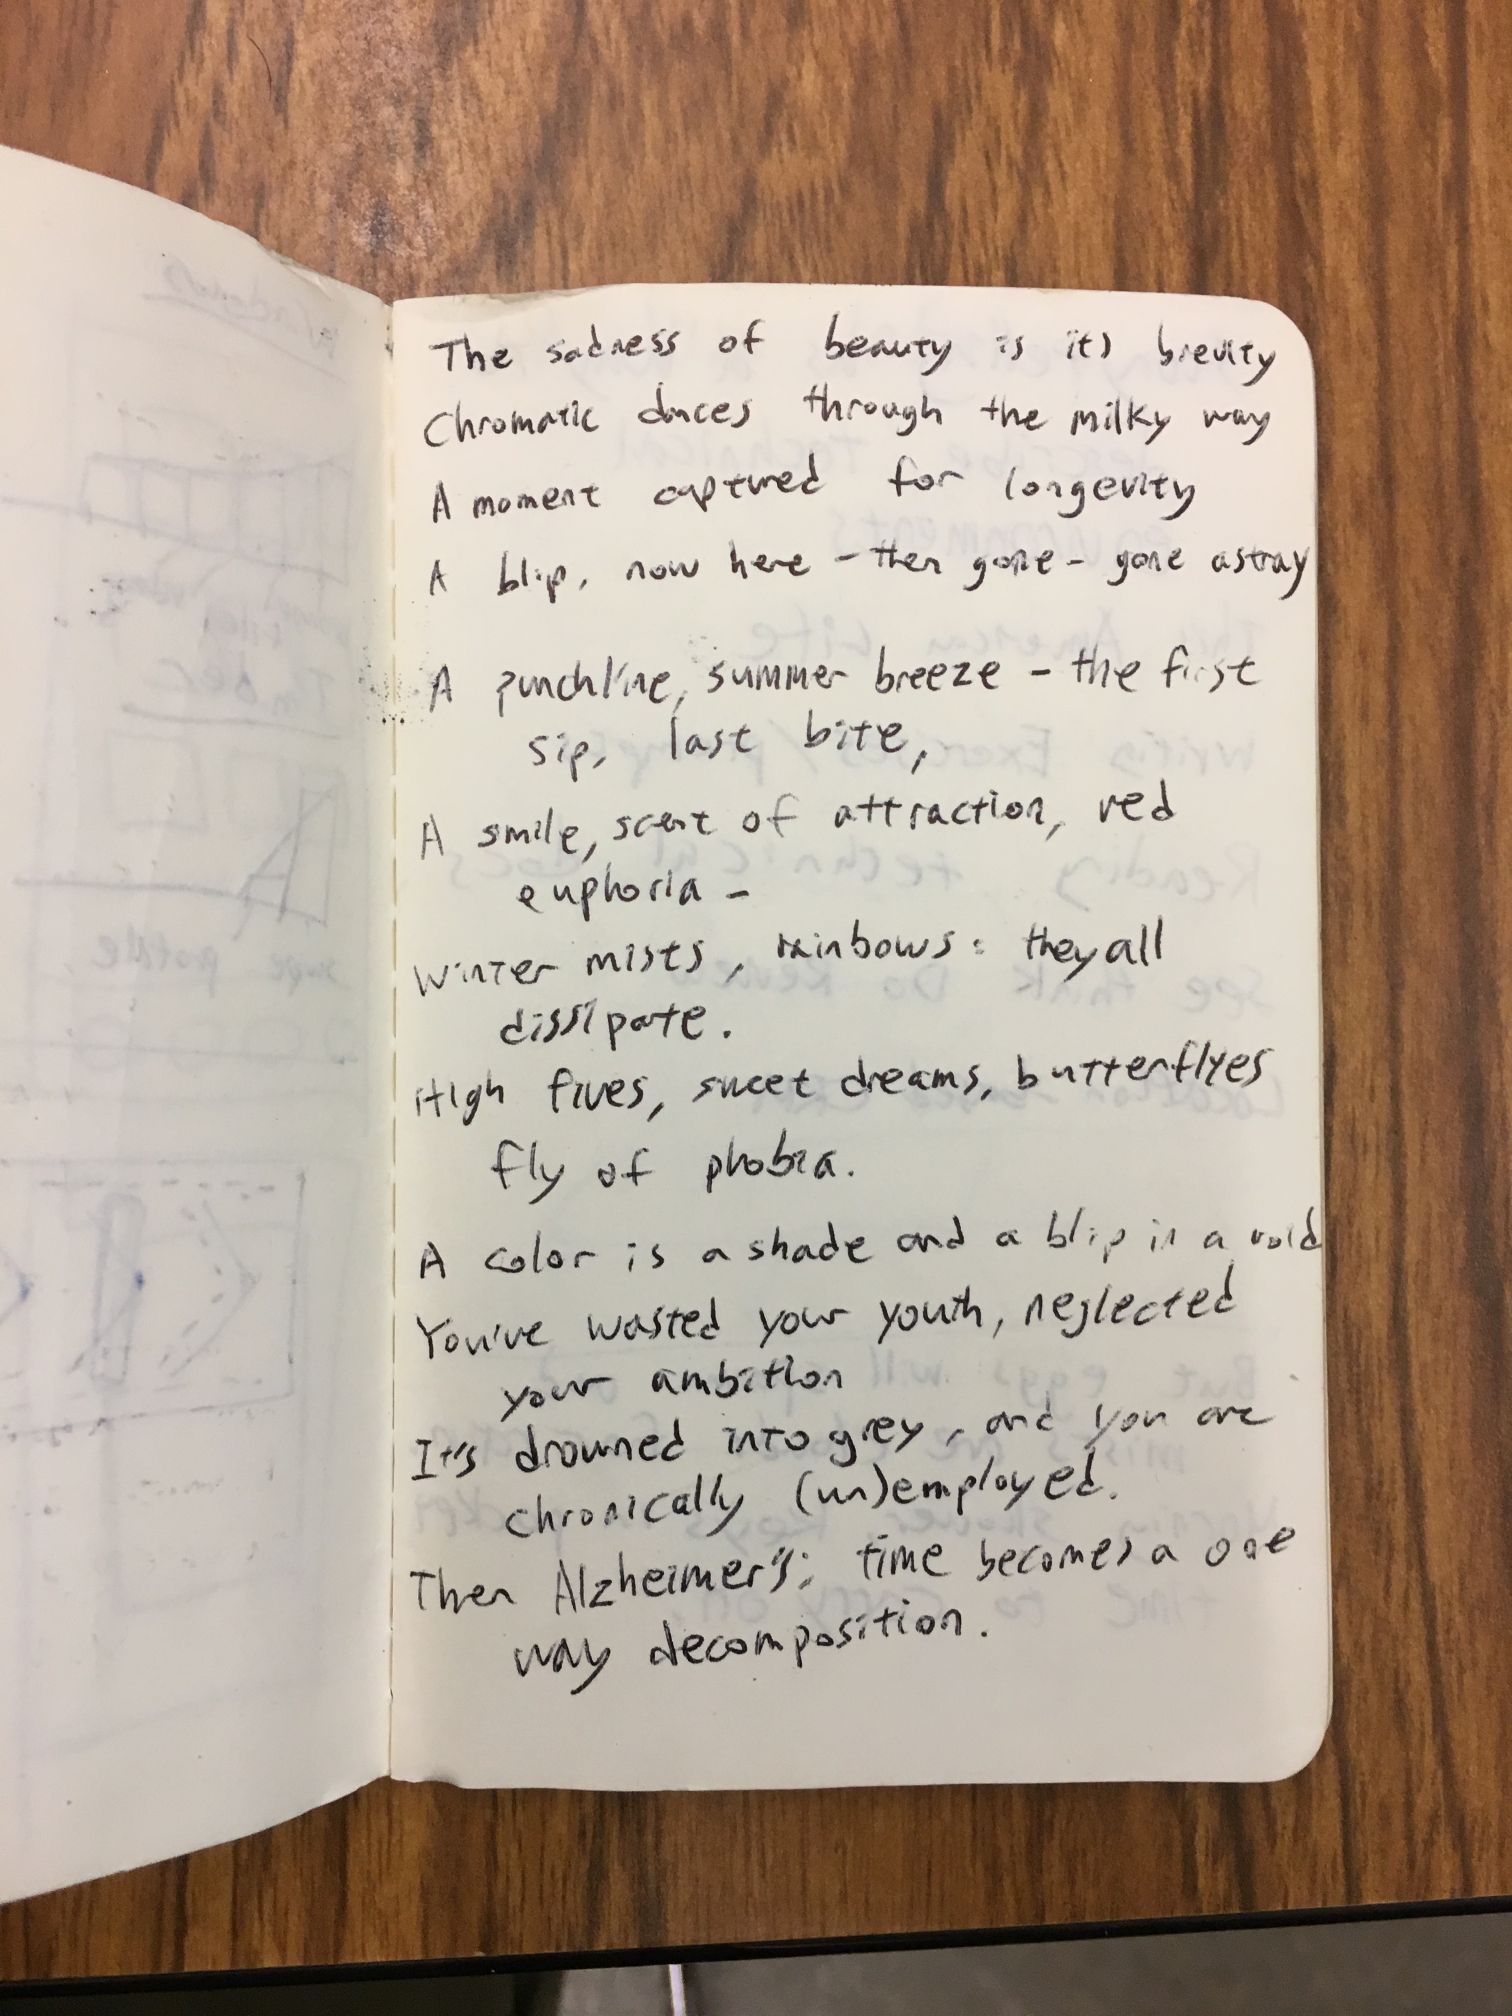 The sadness of beauty is its brevity
Chromatic dances through the milky way
A moment captured for longevity
A blip, now here - then gone - gone astray
A punchline, summer breeze - the first
sip, last bite,
A smile, scent of attraction, red
euphoria -
Winter mists, rainbows: they all
dissipate.
High fives, sweet dreams, butterflyes
fly of phobia.
A color is a shade and a blip in a void
You've wasted your youth, neglected
your ambition
It's drowned into grey, and you are
chronically (un)employed.
Then Alzheimer's; time becomes a one
way decomposition.